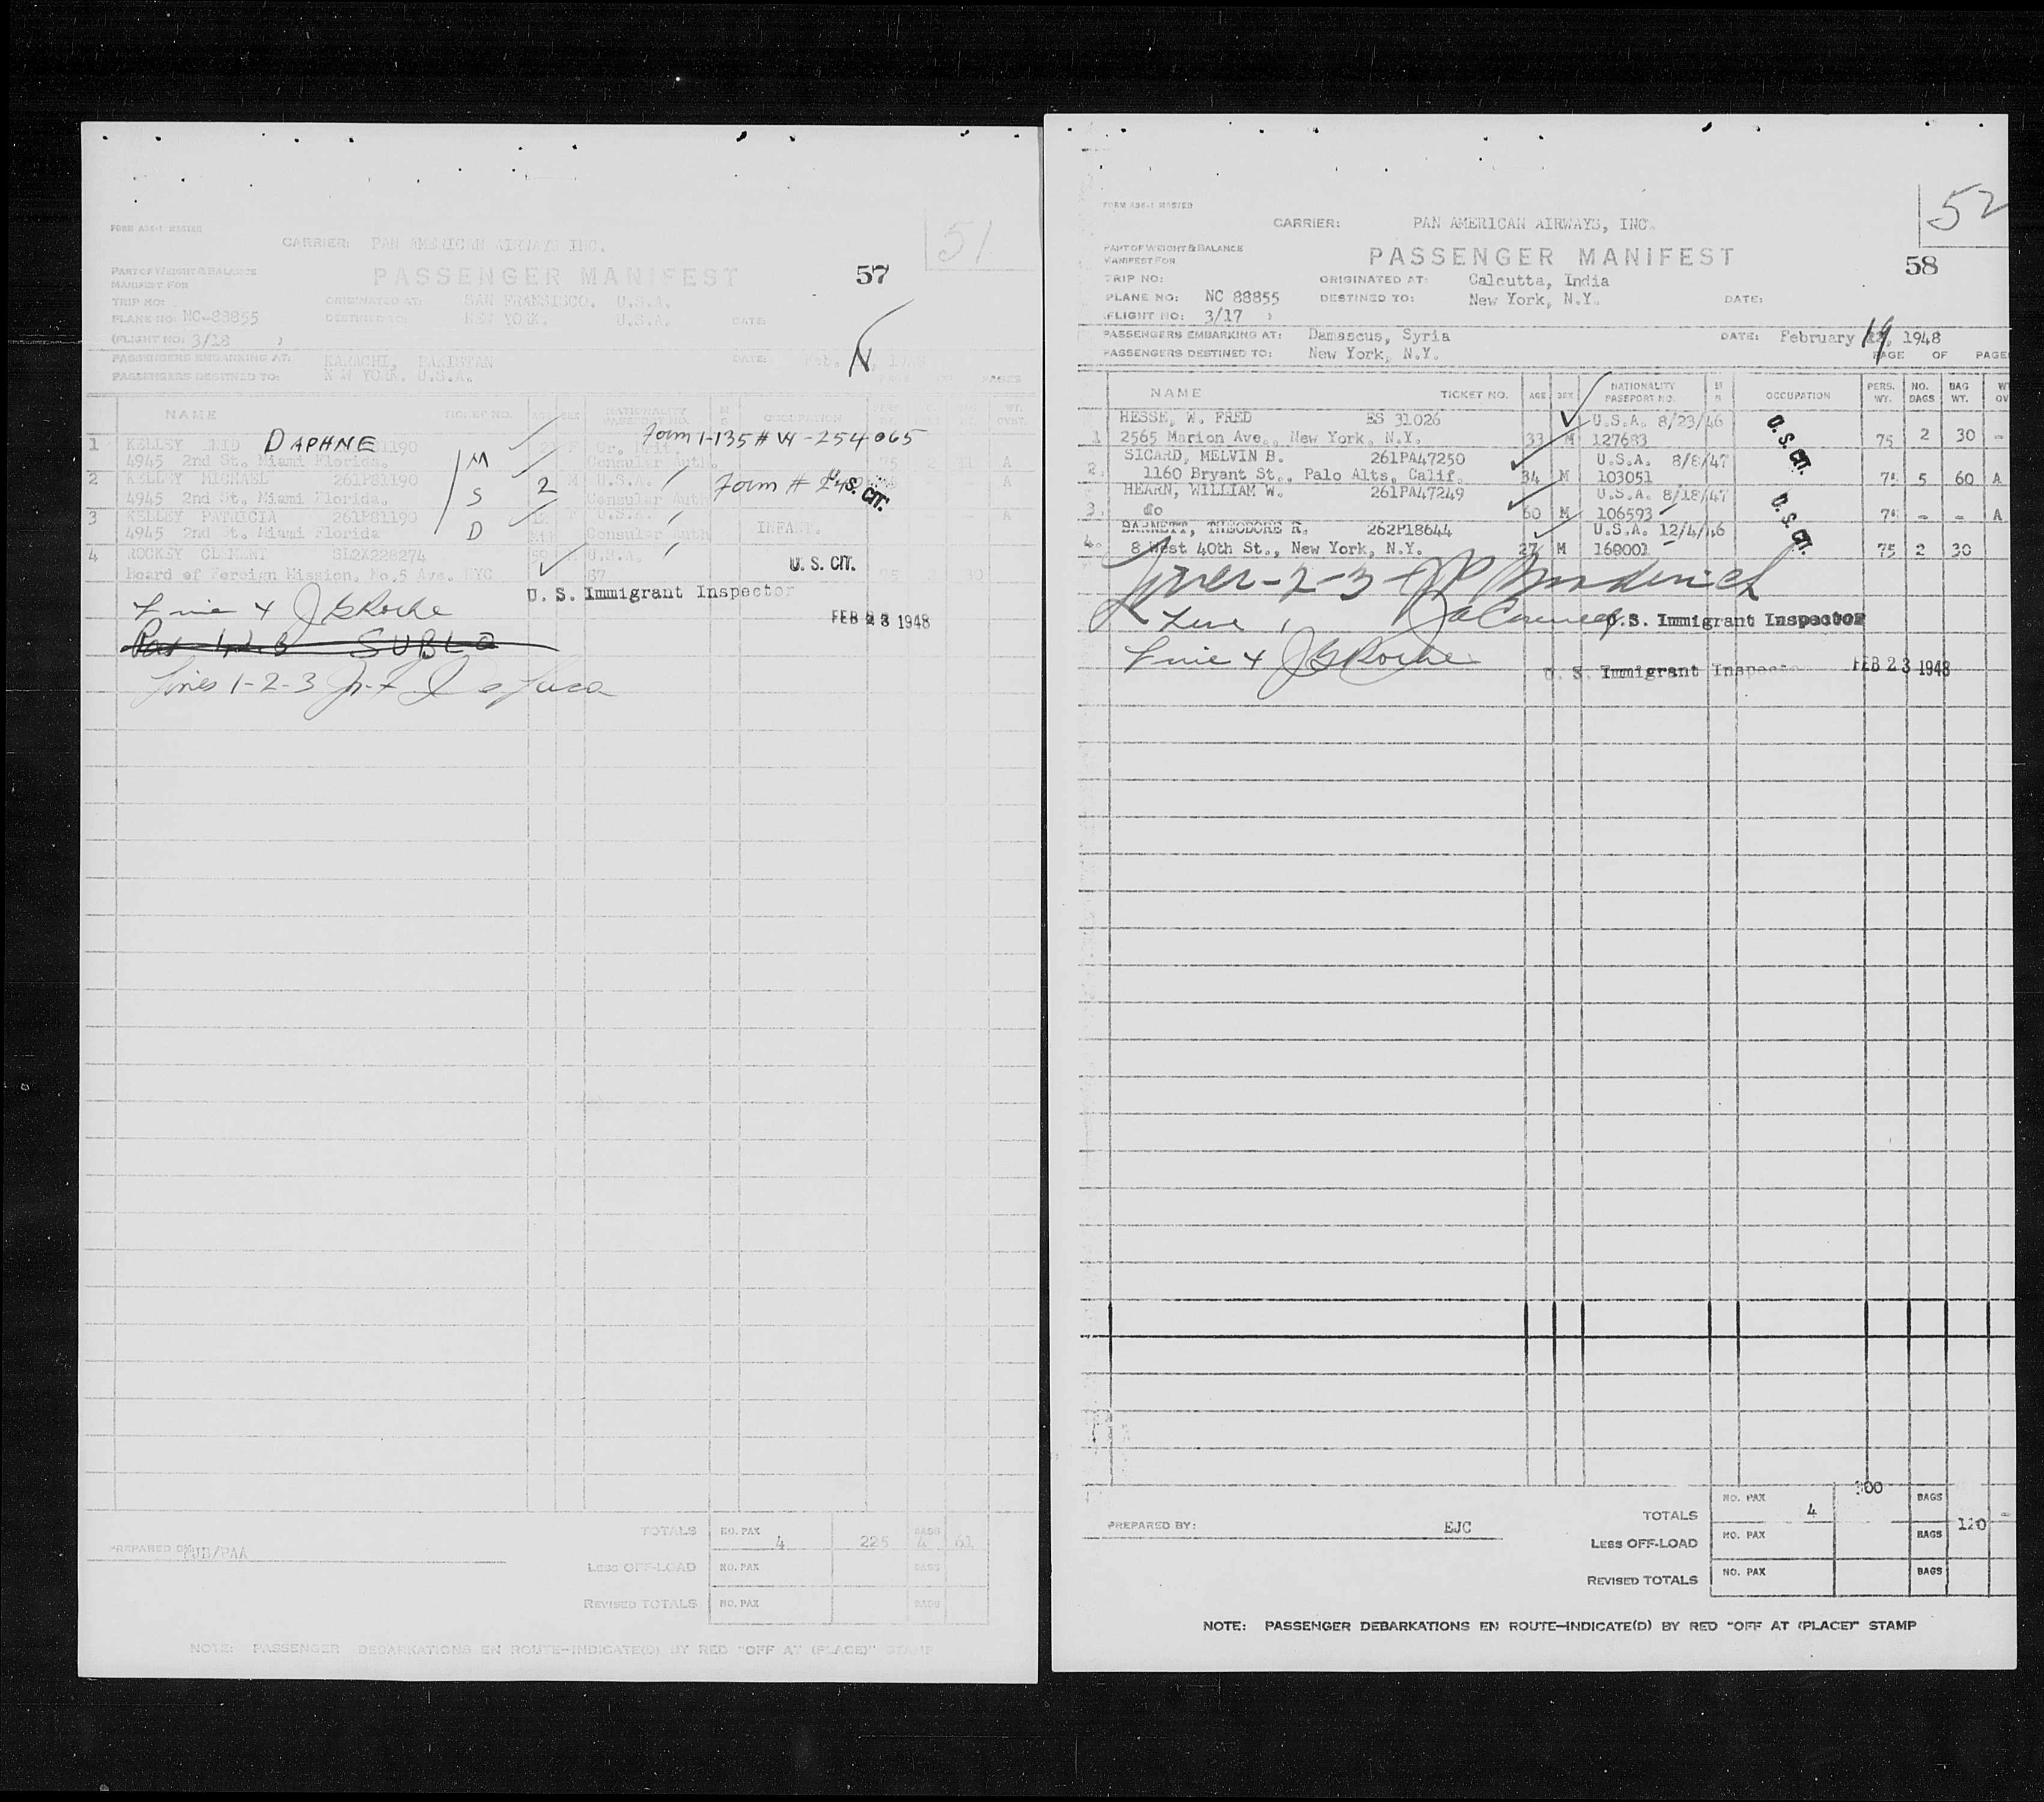 51
FORM A36-1 MASTER
CARRIER: PAN AMERICAN AIRWAYS INC.
PART OF WEIGHT & BALANCE
MANIFEST FOR
PASSENGER MANIFEST
57
TRIP NO:
ORIGINATED AT: SAN FRANSISCO. U.S.A.
PLANE NO: NC-88855
DESTINED TO: NEW YORK. U.S.A. DATE:
(FLIGHT NO: 3/18 )
PASSENGERS EMBARKING AT: KARACHI, PAKISTAN DATE: Feb.
PASSENGERS DESTINED TO: NEW YORK. U.S.A.
NAME TICKET NO. AGE SEX NATIONALITY PASSPORT NO. OCCUPATION WT. OVRT.
Form 1-135 # W-254065
1 KELLEY ENID DAPHNE 81190
4945 2nd St. Miami Florida. M Consular Auth. A
2 KELLEY MICHAEL 261P81190 2 M U.S.A. Form # U.S. CIT. A
4945 2nd St. Miami Florida. S Consular Auth
3 KELLEY PATRICIA 261P81190 U.S.A. A
4945 2nd St. Miami Florida D Consular Auth INFANT.
4 ROCKEY CLEMENT SL2X228274 59 U.S.A. U. S. CIT.
Board of Foreign Mission. No.5 Ave. NYC 67 75 30
U. S. Immigrant Inspector
Line 4 J G Roche
FEB 23 1948
Lines 1-2-3
TOTALS NO. PAX 4 225 BAGS 4 61
PREPARED BY: MJB/PAA
LESS OFF-LOAD NO. PAX BAGS
REVISED TOTALS NO. PAX BAGS
NOTE: PASSENGER DEBARKATIONS EN ROUTE—INDICATE(D) BY RED "OFF AT (PLACE)" STAMP
52
FORM A36-1 MASTER
CARRIER: PAN AMERICAN AIRWAYS, INC.
PART OF WEIGHT & BALANCE
MANIFEST FOR
PASSENGER MANIFEST
58
TRIP NO: ORIGINATED AT: Calcutta, India
PLANE NO: NC 88855 DESTINED TO: New York, N.Y. DATE:
(FLIGHT NO: 3/17 )
PASSENGERS EMBARKING AT: Damascus, Syria DATE: February 19, 1948
PASSENGERS DESTINED TO: New York, N.Y. PAGE OF PAGE
NAME TICKET NO. AGE SEX NATIONALITY PASSPORT NO. OCCUPATION PERS. WT. NO. BAGS BAG WT.
HESSE, W. FRED ES 31026 U.S.A. 8/23/46
1 2565 Marion Ave., New York, N.Y. 33 M 127683 75 2 30 -
SICARD, MELVIN B. 261PA47250 U.S.A. 8/8/47 U.S. CIT.
2. 1160 Bryant St., Palo Alts, Calif. 34 M 103051 75 5 60 A
HEARN, WILLIAM W. 261PA47249 U.S.A. 8/18/47
3. do 60 M 106593 75 - - A
BARNETT, THEODORE R. 262P18644 U.S.A. 12/4/46 U.S. CIT.
4. 8 West 40th St., New York, N.Y. 27 M 168001 75 2 30
Lines-2-3
Line 1
U. S. Immigrant Inspector
Line 4 J G Roche
U. S. Immigrant Inspector FEB 23 1948
300
TOTALS NO. PAX 4 BAGS 120 -
PREPARED BY: EJC
LESS OFF-LOAD NO. PAX BAGS
REVISED TOTALS NO. PAX BAGS
NOTE: PASSENGER DEBARKATIONS EN ROUTE—INDICATE(D) BY RED "OFF AT (PLACE)" STAMP